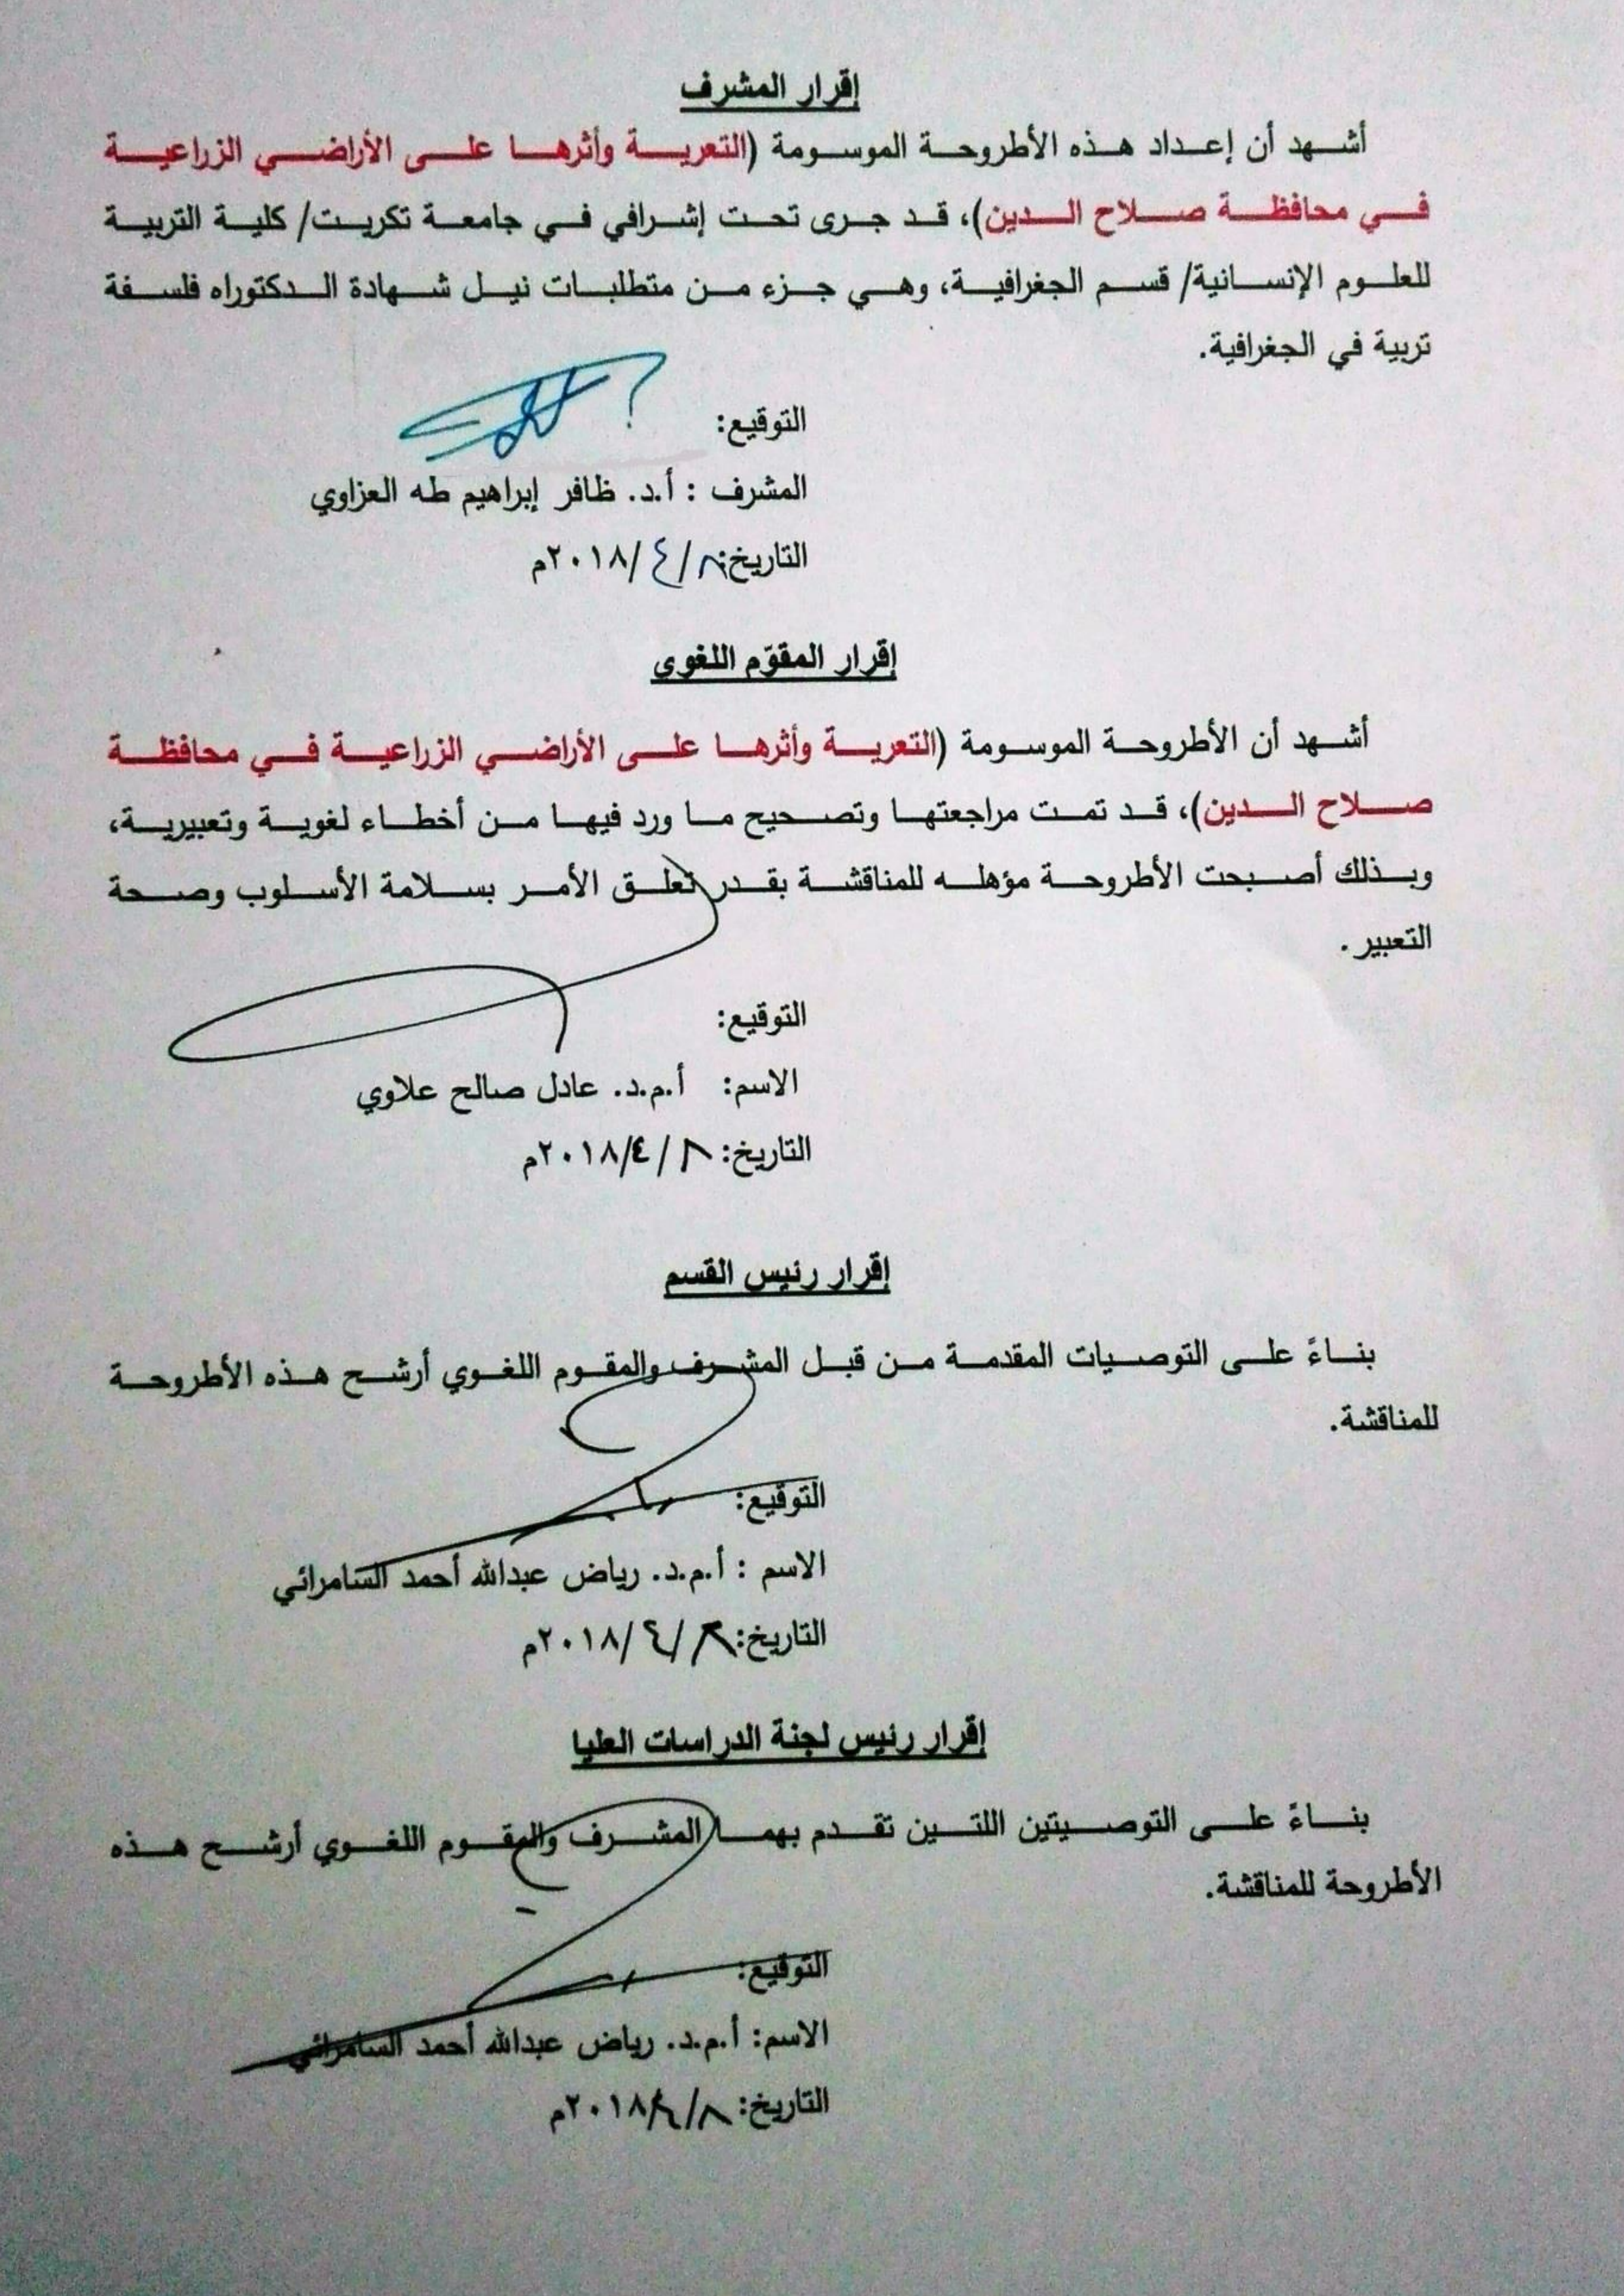 إقرار المشرف
أشهد أن إعداد هذه الأطروحة الموسومة (التعرية وأثرها على الأراضي الزراعية
في محافظة صلاح الدين)، قد جرى تحت إشرافي في جامعة تكريت/ كلية التربية
للعلوم الإنسانية/ قسم الجغرافية، وهي جزء من متطلبات نيل شهادة الدكتوراه فلسفة
تربية في الجغرافية.
التوقيع:
المشرف : أ.د. ظافر إبراهيم طه العزاوي
التاريخ: ٨/ ٤ /٢٠١٨م
إقرار المقوّم اللغوي
أشهد أن الأطروحة الموسومة (التعرية وأثرها على الأراضي الزراعية في محافظة
صلاح الدين)، قد تمت مراجعتها وتصحيح ما ورد فيها من أخطاء لغوية وتعبيرية،
وبذلك أصبحت الأطروحة مؤهله للمناقشة بقدر تعلق الأمر بسلامة الأسلوب وصحة
التعبير .
التوقيع:
الاسم: أ.م.د. عادل صالح علاوي
التاريخ: ٨ /٢٠١٨/٤م
إقرار رئيس القسم
بناءً على التوصيات المقدمة من قبل المشرف والمقوم اللغوي أرشح هذه الأطروحة
للمناقشة.
التوقيع:
الاسم : أ.م.د. رياض عبدالله أحمد السامرائي
التاريخ: ٨/ ٤ /٢٠١٨م
إقرار رئيس لجنة الدراسات العليا
بناءً على التوصيتين اللتين تقدم بهما المشرف والمقوم اللغوي أرشح هذه
الأطروحة للمناقشة.
التوقيع:
الاسم: أ.م.د. رياض عبدالله أحمد السامرائي
التاريخ: ٨/ ٤/٢٠١٨م